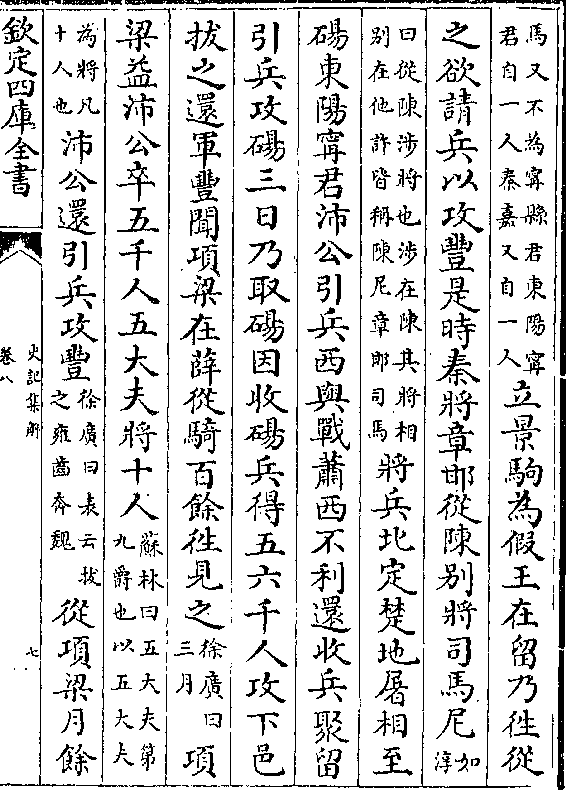 馬又不為甯縣君東陽甯
君自一人秦嘉又自一人
立景駒為假王在留乃徃從
之欲請兵以攻豐是時秦將章邯從陳别將司馬尼
如
淳
曰從陳涉將也涉在陳其將相
别在他許皆稱陳尼章邯司馬
將兵北定楚地屠相至
碭東陽甯君沛公引兵西與戰蕭西不利還收兵聚留
引兵攻碭三日乃取碭因收碭兵得五六千人攻下邑
拔之還軍豐聞項梁在薛從騎百餘徃見之
徐廣曰
三月
項
梁益沛公卒五千人五大夫將十人
蘇林曰五大夫第
九爵也以五大夫
為將凡
十人也
沛公還引兵攻豐
徐廣曰表云拔
之雍齒奔魏
從項梁月餘
欽定四庫全書
史記集解
卷八
七